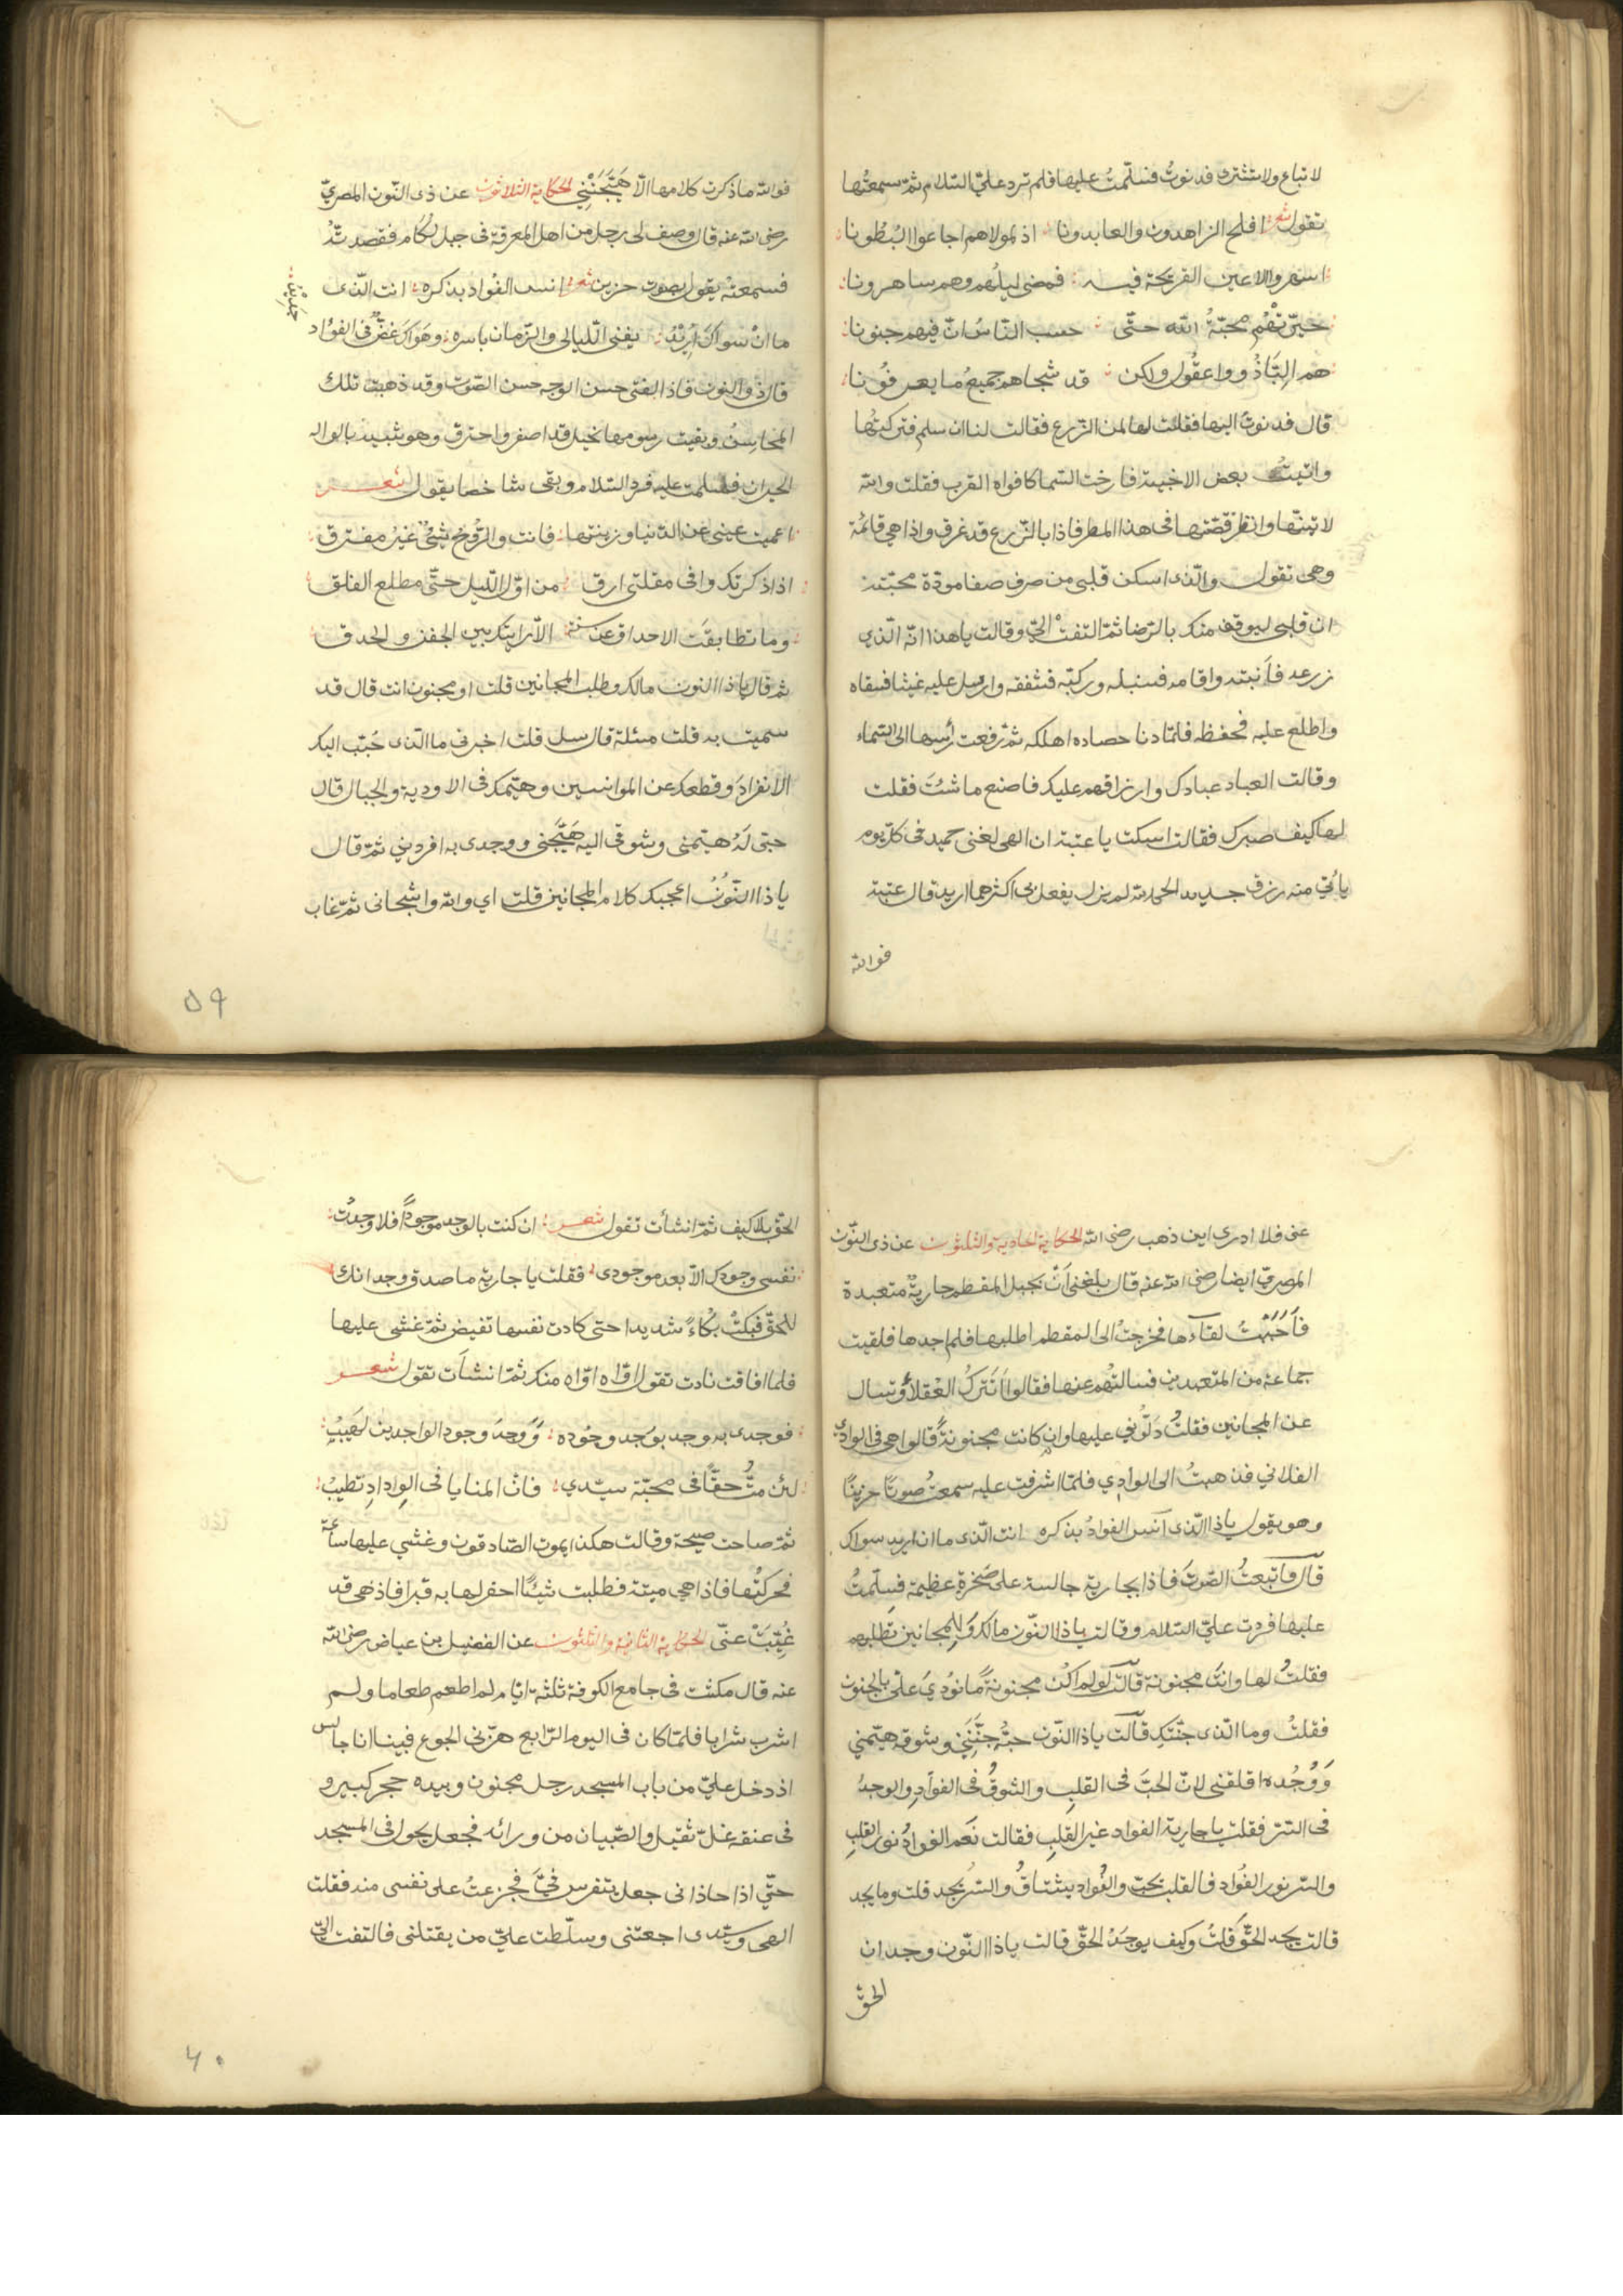 لا تباع ولا تشترى فدنوتُ فسلّمتُ عليها فلم ترد علىّ السّلام ثمّ سمعتُها
تقول شعر افلح الزاهدون والعابدونا اذ لمولاهم اجاعوا البُطُونا
اسهروا الاعين القريحة فيه فمضى ليلُهم وهم ساهرونا
حيّرتهُم محبّةُ الله حتّى حسب النّاسُ انّ فيهم جنونا
هم الِبّاذُووا عقُول ولكن قد شجاهم جميعُ ما يعرفُونا
قال فدنوتُ اليها فقلت لها لمن الزّرع فقالت لنا ان سلم فتركتُها
واتيتُ بعض الاخبية فارخت السّما كافواه القرب فقلت والله
لاتينّها وانظر قصّتها فى هذا المطر فاذا بالزّرع قد غرق واذا هى قائمة
وهى تقول والّذى اسكن قلبى من صرف صفا مودّة محبّته
ان قلبى ليوقف منك بالرّضا ثمّ التفتْ الىّ وقالت يا هذا انّه الّذي
زرعه فأنبته واقامه فسنبله وركبّه فشفقه وارسل عليه غيثا فسقاه
واطلع عليه فحفظه فلمّا دنا حصاده اهلكه ثمّ رفعت رأسها الى السّماء
وقالت العباد عبادك وارزاقهم عليك فاصنع ما شئت فقلت
لها كيف صبرك فقالت اسكت يا عتبة ان الهى لغنى حميد فى كلّ يوم
يأتى منه رزق جديد الحمد لله لم يزل يفعل بى اكثر مما اريد قال عتبة
فوالله
فوالله ما ذكرت كلامها الّا هَيَّجَنْنِي الحكاية الثلاثون عن ذى النّون المصرىّ
رضى الله عنه قال وصف لى رجل من اهل المعرفة فى جبل لُكام فقصدتُه
فسمعتهُ يقول بصوت حزين شعر انس الفوّاد بذكره انت الّذى
ما انْ سواكَ اُرِيْدُ يفنى اللّيالى والزّمان باسره وهَواكَ غضٌّ فى الفؤاد
جَدِيْدٌ
قال ذو النون فاذا بفتى حسن الوجه حسن الصّوت وقد ذهبت تلك
المحاسِنُ وبقيت رسومها نحيل قد اصفر واحترق وهو شبيه بالواله
الحيران فسلمت عليه فردّ السّلام وبقى شاخصا يقول شعر
اعميت عينى عن الدّنيا وزينتها فانت والرّوُح شيْئٌ غيرُ مفترق
اذا ذكرتك وافى مقلتى ارق من اوّل اللّيل حتّى مطلع الفلق
وما تطابقَت الاحداق عن سنة الّا رايتك بين الجفن والحدق
ثمّ قال يا ذا النون مالك وطلب المجانين قلت او مجنون انت قال قد
سميت به قلت مسئلة قال سل قلت اخبرنى ما الّذى حَبّب اليك
الانفرادَ وقطعك عن الموانسين وهيّمك فى الاودية والجبال قال
حبّى لَهُ هيّمنى وشوقى اليه هَيَّجنى ووجدى به افردني ثمّ قال
يا ذا النّوْنُ اعجبك كلام المجانين قلت اي والله واشجانى ثمّ غاب
٥٩
عنى فلا ادرى اين ذهب رضى الله الحكاية الحادية والثلثون عن ذى النّون
المصرىّ ايضا رضى الله عنه قال بلغنى اَنّ بجبل المقطم جاريةٌ متعبدة
فاَحْبَبْتُ لقاءَها فخرجتُ الى المقطم اطلبها فلم اجدها فلقيت
جماعة من المتعبدين فسالتُهم عنها فقالوا اَتَترُكُ العُقلاَء وتسال
عن المجانين فقلتُ دَلّوني عليها وان كانت مجنونةً قالوا هى فى الوادي
الفلاني فذهبتُ الى الوادِي فلمّا اشرفت عليه سمعت صوتًا حزينًا
وهو يقول يا ذا الّذى انَس الفوادُ بذكره انت الّذى ما ان اريد سواك
قال فاتّبعتُ الصّوتَ فاذا بجارية جالسة على صَخرة عظيمة فسلّمتُ
عليها فردت علىّ السّلام وقالت يا ذا النّون مالك وَللمجانين تَطلبهم
فقلتُ لها وانتَ مجنونة قالت لو لم اكُن مجنونةً مانُودِيَ علىّ بالجنون
فقلتُ وما الّذى جنّنكِ قالت يا ذا النّون حبّهُ جنّننِي وشوقه هيّمني
وَوُجُده اقلقنى لانّ الحبَّ فى القلبِ والشوقُ فى الفوآدِ والوجدُ
فى السّر فقلت يا جارية الفواد غير القلبِ فقالت نَعم الفوادُ نور القلبِ
والسّر نور الفُوآد فالقلب يحبّ والفُواد يشتاقُ والسّر يجد قلت وما يجد
قالت يجد الحقّ قلتُ وكيف يوجَدُ الحقّ قالت يا ذا النّون وجدان
الحقّ
الحقّ بلا كيف ثمّ انشأت تقول شعر ان كنت بالوجد موجودًا فلا وجدتُ
نفسى وجودك الّا بعد موجودى فقلت يا جاريةُ ما صدق وجدانك
للحقّ فبكتْ بكُاءً شديدا حتى كادت نفسها تفيض ثمّ غشى عليها
فلما افاقت نادت تقول اوّاه اوّاه منك ثمّ انشاَت تقول شعر
فوجدى به وجد بوُجد وجُوده وَوَجدَ وجود الواجدين لهَيبُ
لئن متُّ حقًّا فى محبّة سيّدي فانّ المنايا فى الوِدادِ تطيبُ
ثمّ صاحت صيحة وقالت هكذا يموت الصّادقون وغشي عليها ساعة
فحركتُها فاذا هى ميتة فطلبت شيئًا احفر لها به قبرا فاذا هى قد
غُيّبَتْ عنّى الحكاية الثانية والثلثون عن الفضيل بن عياض رضى الله
عنه قال مكثت فى جامع الكوفة ثلثة ايّام لم اطعم طعاما ولم
اشرب شرابا فلمّا كان فى اليوم الرّابع هزّنى الجوع فبينا انا جالس
اذ دخل علىّ من باب المسجد رجل مجنون وبيده حجر كبير و
فى عنقه غلّ ثقيل والصّبيان من ورائه فجعل يجول فى المسجد
حتّي اذا حاذانى جعل يتفرس فىَّ فجزعتُ على نفسى منه فقلت
الهى وسيّدى اجعتنى وسلّطت علىّ من يقتلنى فالتفت الىّ
٦٠